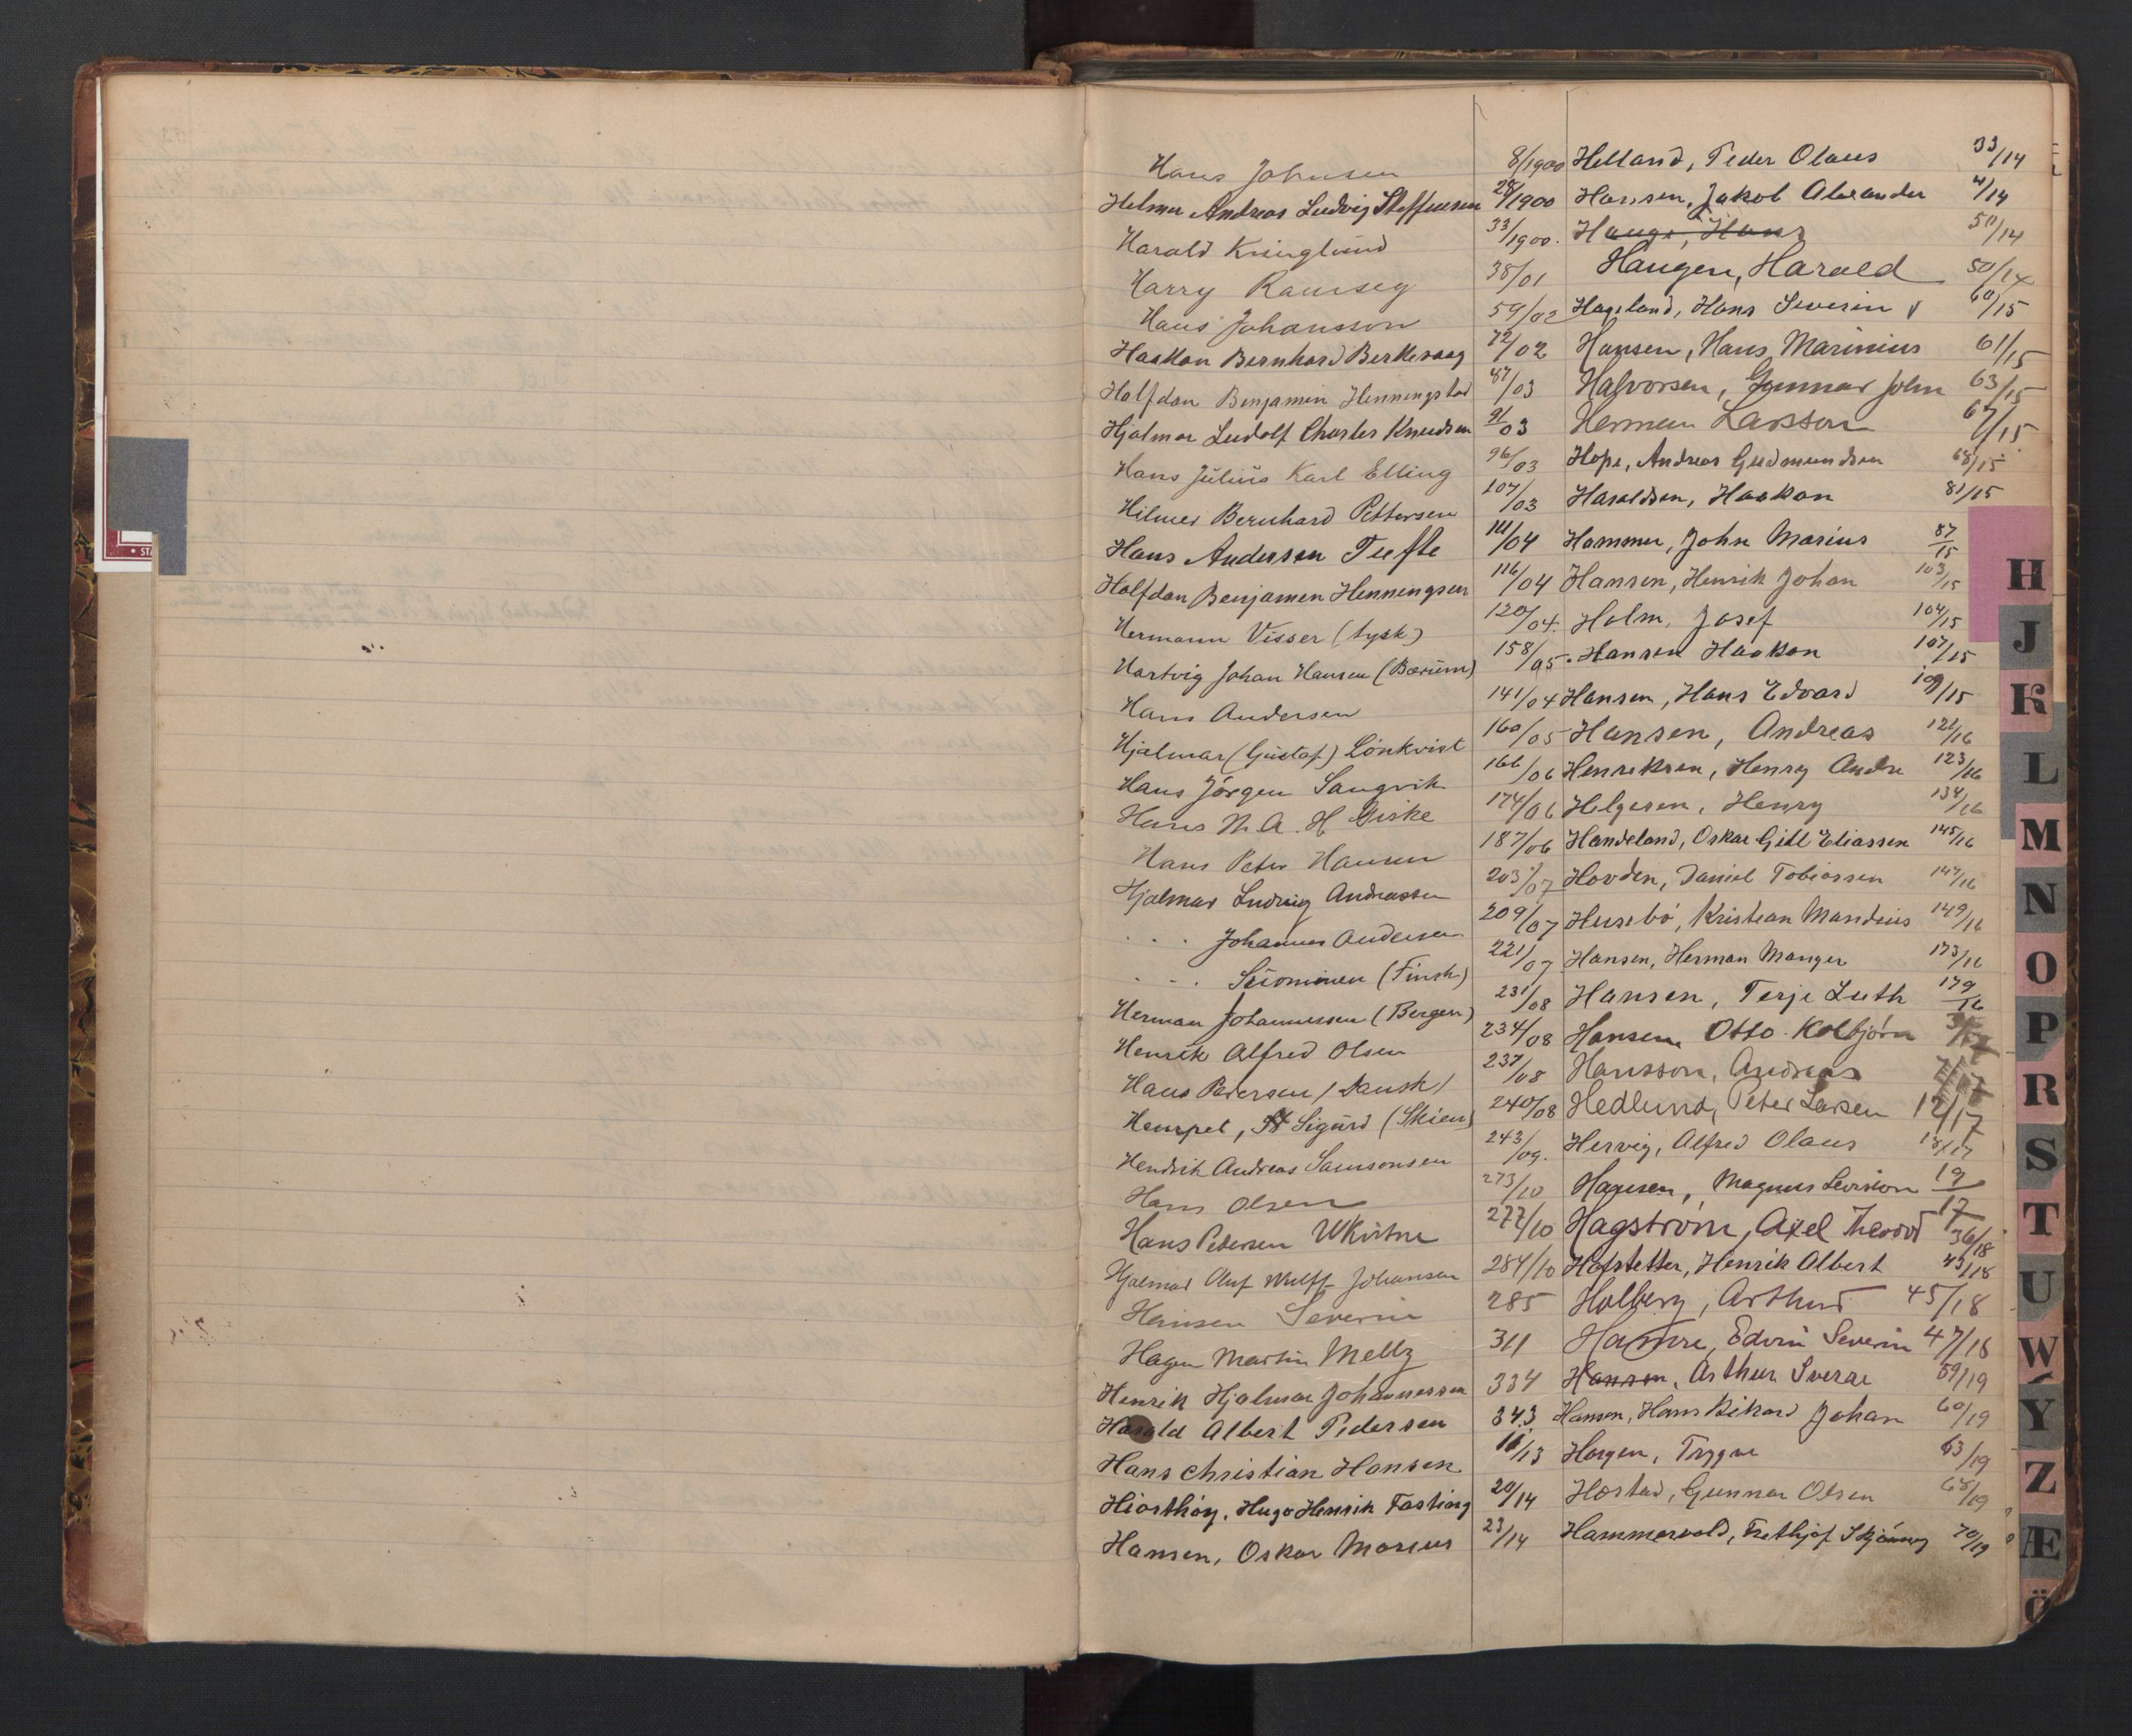 Hans Johnsen 8/1900
Helmer Andreas Ludvig Steffensen 28/1900
Harald Kringlund 33/1900.
Harry Ramsey 38/01
Hans Johansson 59/02
Haakon Bernhard 72/02
Halfdan Benjamin Henningstad 87/03
Hjalmar Ludolf Charles Knudsen 91/03
Hans Julius Karl Elling 96/03
Hilmer Bernhard Pettersen 107/03
Hans Andersen Tufte 111/04
Halfdan Benjamen Henningsen 116/04
Hermann Visser (tysk) 120/04.
Hartvig Johan Hansen (Bærum) 158/05.
Hans Andersen 141/04
Hjalmar (Gustaf) Lönkvist 160/05
Hans Jörgen Sangvik 166/06
Hans N. A. H. Giske 174/06
Hans Peter Hansen 187/06
Hjalmar Ludvig Andreassen 203/07
- - Johannes Andersen 209/07
- - Suominen (Finsk) 221/07
Herman Johannessen (Bergen) 231/08
Henrik Alfred Olsen 234/08
Hans Pedersen / Dansk / 237/08
Hempel, Sigurd (Skien) 240/08
Hendrik Andreas Samsonsen 243/09.
Hans Olsen 273/10
Hans Pedersen 277/10
Hjalmar Oluf Wulff Johansen 284/10
Hansen Severin 285
Hagen Martin Meltz 311
Henrik Hjalmar Johannessen 334
Harald Albert Pedersen 343
Hans Christian Hansen 11/13
Hiorthöy, Hugo Henrik Fasting 20/14
Hansen, Oskar Marius 23/14
Helland, Peder Olaus 33/14
Hansen, Jakob Alexander 41/14
Hauge, Hans 50/14
Haugen, Harald 50/14
Hageland, Hans Severin 60/15
Hansen, Hans Marinius 61/15
Halvorsen, Gunnar John 63/15
Herman Larsson 67/15
Hope, Andreas Gudmundsen 68/15
Haraldsen, Haakon 81/15
Hammer, John Marius 87/15
Hansen, Henrik Johan 103/15
Holm, Josef 104/15
Hansen Haakon 107/15
Hansen, Hans Edvard 109/15
Hansen, Andreas 121/16
Henriksen, Henry Andre 123/16
Helgesen, Henry 134/16
Handeland, Oskar Gitl Eliassen 145/16
Hovden, Daniel Tobiassen 147/16
Husebö, Kristian Mandius 149/16
Hansen, Herman Manger 173/16
Hansen, Terje Luth 179/16
Hansen, Otto Kolbjörn
Hansson, Andreas
Hedlund, Peter Larsen 12/17
Hervig, Alfred Olaus 18/17
Hagesen, Magnus Levision 19/17
Hagström, Axel Theodor 36/18
Hofstetter, Henrik Albert 43/18
Holberg, Arthur 45/18
Hamre, Edvin Severin 47/18
Hansen, Arthur Sverre 59/19
Hansen, Hans Rikard Johan 60/19
Horgen, Trygve 63/19
Hostad, Gunnar Olsen 68/19
Hammervold, Frithjof 70/19
H
J
K
L
M
N
O
P
R
S
T
U
W
Y
Z
Æ
Ö